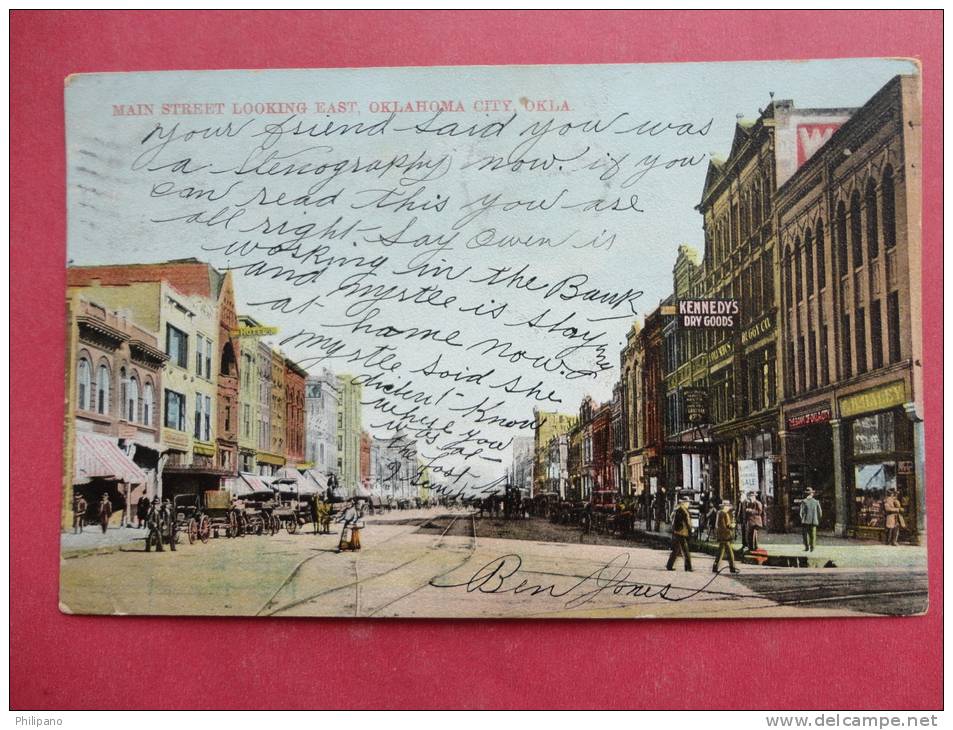 MAIN STREET LOOKING EAST, OKLAHOMA CITY, OKLA.
Your friend Said you was
a Stenography now. if you
can read this you are
all right. Say Owen is
working in the Bank
and Myrtle is Stay ing
at home now.
Myrtle Said She
diden't Know
where you
was at
the last
HOTEL
KENNEDY'S
DRY GOODS
BUGGY CO.
SALE
W
Ben Jones
Philipano
www.delcampe.net